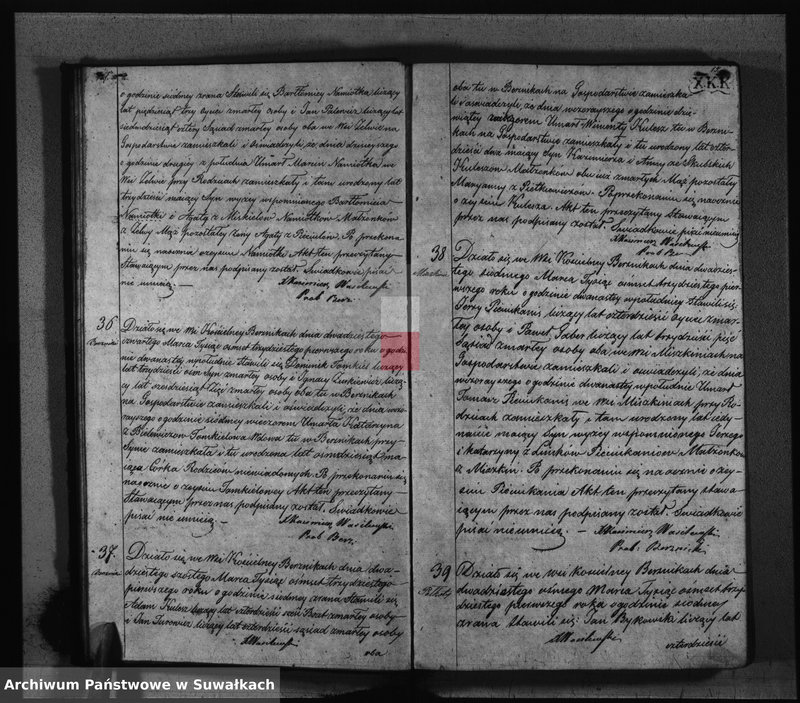 o godzinie siodmey zrana Stawili się Bartłomiey Namiotka liczący
lat pięćdziesiąt trzy oyciec zmarłey osoby i Jan
siedemdziesiąt cztery Sąsiad zmarłey osoby oba we Wsi Zelwie na
Gospodarstwie zamieszkali i oświadczyli, że dnia dzisieyszego
o godzinie drugiey z południa Umarł Marcin Namiotka we
Wsi Zelwie przy Rodzicach zamieszkały i tamże urodzony lat
trzydzieści maiący Syn wyżey wspomnionego Bartłomieia
Namiotki i Agaty z Namiotków Małżonków
z Zelwy Mąż pozostałey żony Agaty z Po przekona-
niu się naocznie o zeyściu Namiotki Akt ten przeczytany
Stawaiącym przez nas podpisany został. Swiadkowie pisać
nie umieią. —
X Kazimierz Wasilewski
Prob. Berz.
36
Działo się we Wsi Kościelney Berznikach dnia dwudziestego
czwartego Marca Tysiąc osmset trzydziestego pierwszego roku o godzi-
nie dwunastey wpołudnie stawili się Dominik Tomkiel liczący
lat trzydzieści osm Syn zmarłey osoby i Ignacy Zienkiewicz liczą-
cy lat sześćdziesiąt zmarłey osoby oba tu w Berznikach
na Gospodarstwie zamieszkali i oświadczyli, że dnia wczo-
rayszego o godzinie siodmey wieczorem Umarła Katarzyna
z Tomkielowa Wdowa tu w Berznikach przy
Synie zamieszkała i tu urodzona lat osmdziesiąt ma-
iąca Córka Rodziców niewiadomych. Po przekonaniu się
naocznie o zeyściu Tomkielowey Akt ten przeczytany
Stawaiącym przez nas podpisany został. Swiadkowie
pisać nie umieią. —
X Kazimierz Wasilewski
Prob. Berz.
37
Działo się we Wsi Kościelney Berznikach dnia dwu-
dziestego szóstego Marca Tysiąc osmset trzydziestego
pierwszego roku o godzinie siodmey zrana Stawili się
Adam Kulesz liczący lat czterdzieści Brat zmarłey osoby
i Jan liczący lat czterdzieści sąsiad zmarłey osoby
X Wasilewski
oba
XKK
oba tu w Bernikach na Gospodarstwie zamieszka-
li i oświadczyli, że dnia wczorayszego o godzinie dzie-
wiątey wieczorem Umarł Winenty Kulesz tu w Berzni-
kach na Gospodarstwie zamieszkały i tu urodzony lat czter-
dzieści dwa maiący Syn Kazimierza i Anny ze Skubskich
Kuleszow Małżonków obu iuż zmarłych Mąż pozostałey
Maryanny z Pietkowiczów. Po przekonaniu się naocznie
o zeyściu Kulesza. Akt ten przeczytany Stawaiącym
przez nas podpisany został. Swiadkowie pisać nieumieią
X Kazimierz Wasilewski
Prob. Ber.
38
Działo się we Wsi Kościelney Berznikach dnia dwudzies-
tego siodmego Marca Tysiąc osmset trzydziestego pier-
wszego roku o godzinie dwunastey wpołudnie Stawili się:
Jerzy Pieciukanis liczący lat czterdzieści Oyciec zmar-
łey osoby i Paweł Gaber liczący lat trzydzieści pięć
Sąsiad zmarłey osoby oba we Wsi Miszkiniach na
Gospodarstwie zamieszkali i oświadczyli, że dnia
wczorayszego o godzinie dwunastey wpołudnie Umarł
Tomasz Pieciukanis we Wsi Miszkiniach przy Ro-
dzicach zamieszkały i tam urodzony lat iedy-
naście maiący Syn wyżey wspomnionego Jerzego
i Katarzyny z Pieciukanisow Małżonkow
z Miszkin. Po przekonaniu się naocznie o zey-
ściu Pieciukanisa Akt ten przeczytany stawa-
iącym przez nas podpisany został. Swiadkowie
pisać nieumieią. — X Kazimierz Wasilewski
Prob. Berznik.
39
Działo się we Wsi Kościelney Berznikach dnia
dwudziestego osmego Marca Tysiąc osmset trzy-
dziestego pierwszego roku o godzinie siodmey
zrana stawili się: Jan Bykowski liczący lat
X Wasilewski
czterdzieści
Archiwum Państwowe w Suwałkach